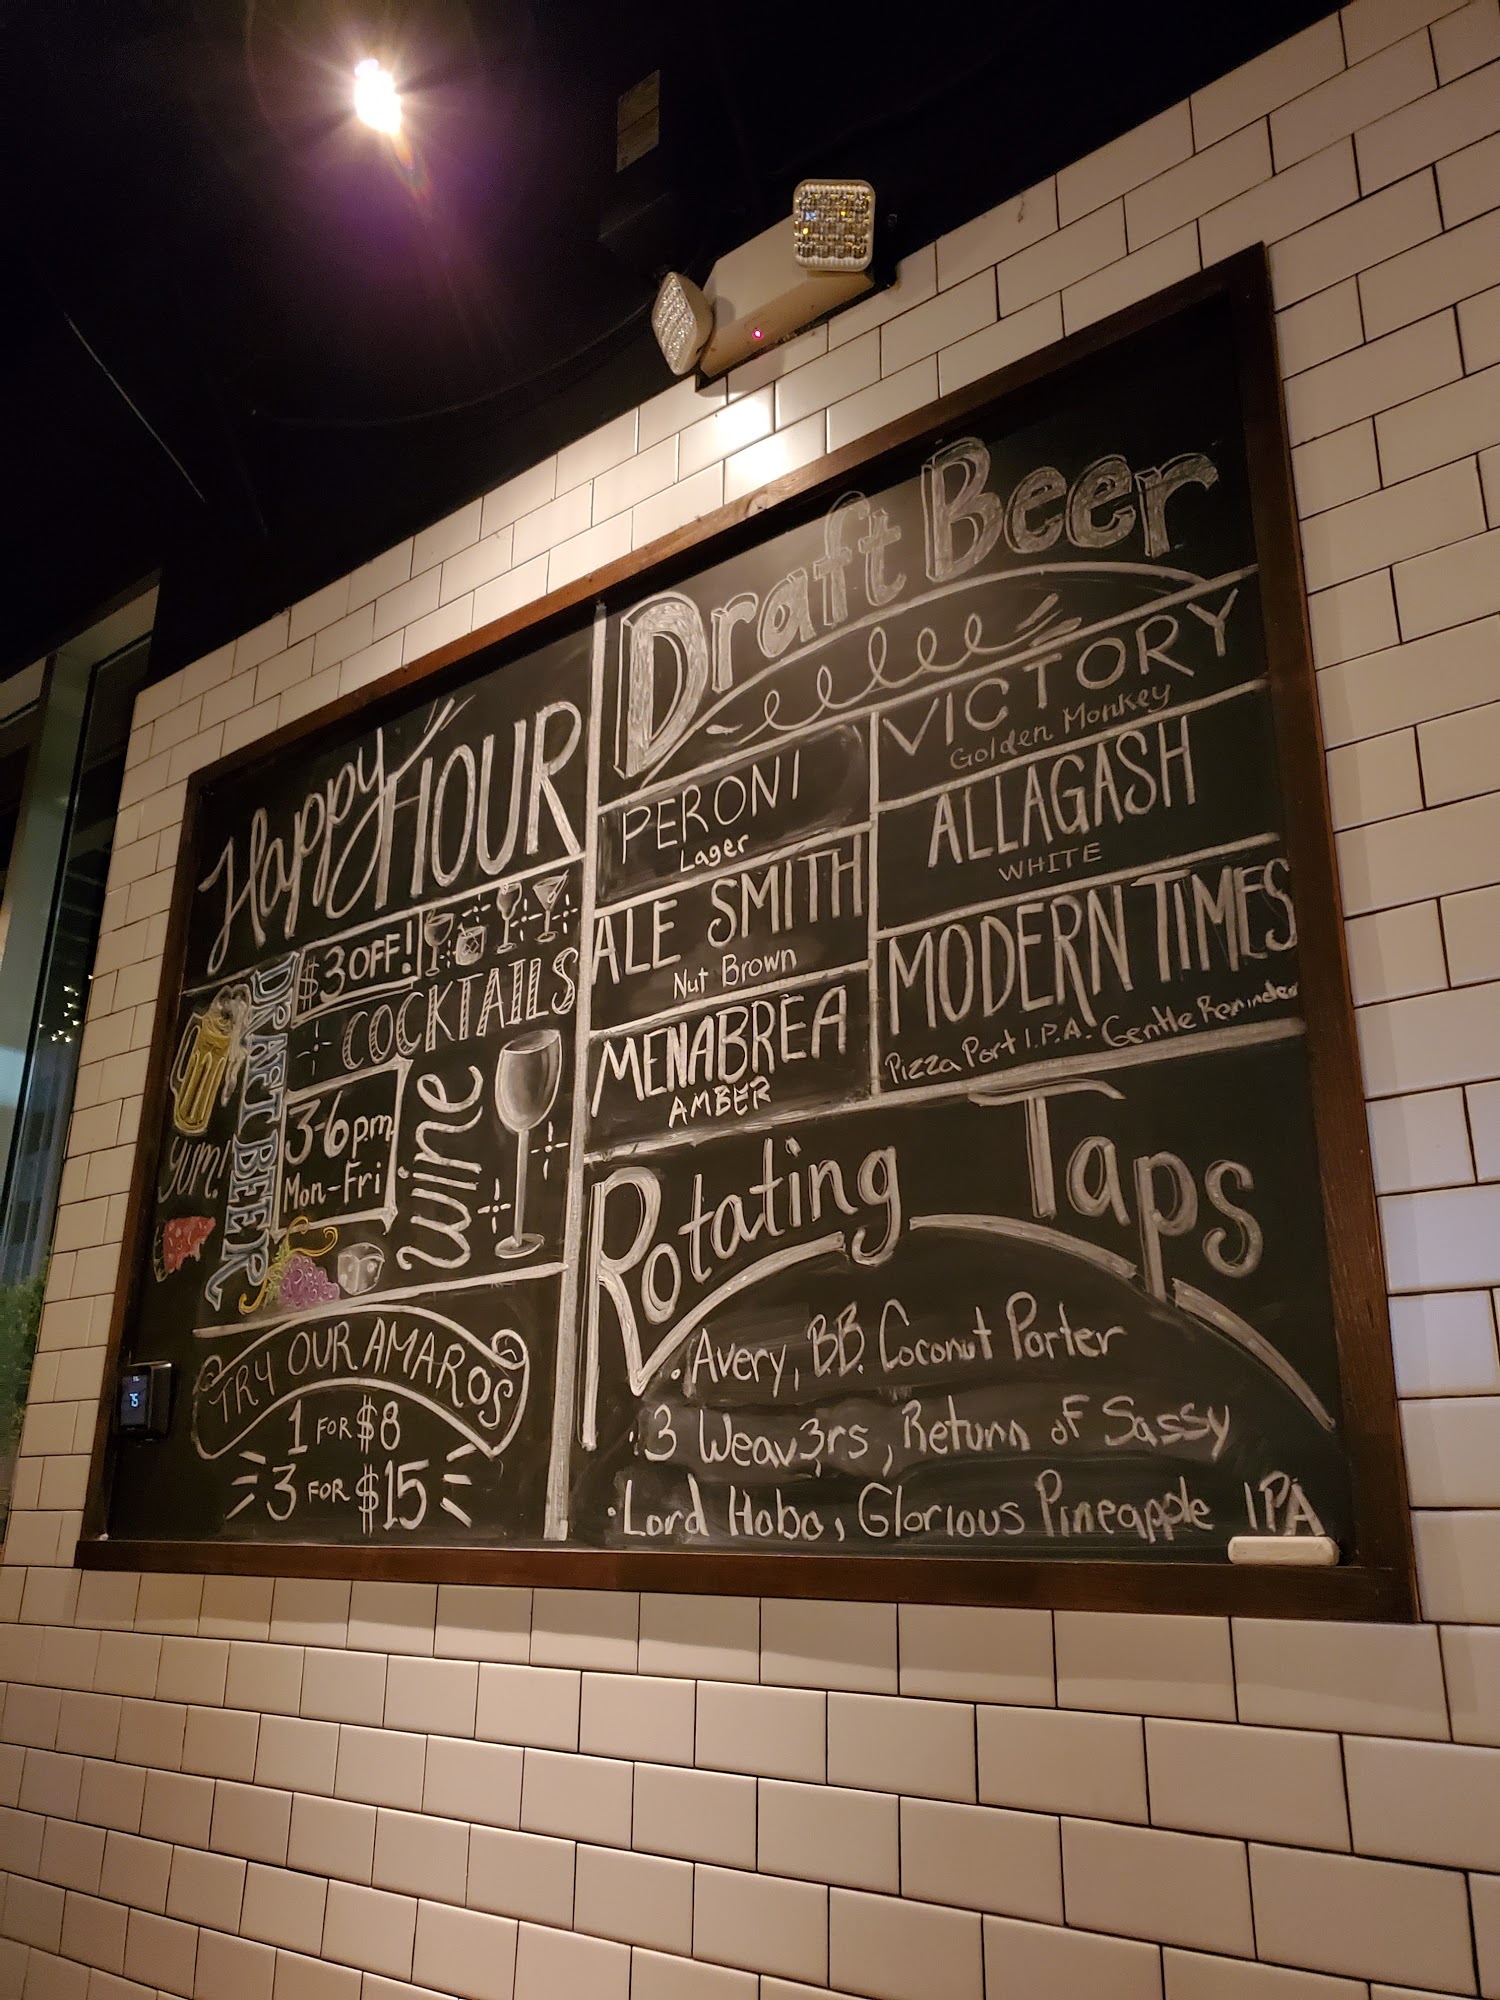 Happy HOUR
$3 OFF!
COCKTAILS
DRAFT BEER
3-6 p.m.
Mon-Fri
wine
YUM!
TRY OUR AMAROS
1 FOR $8
3 FOR $15
Draft Beer
PERONI
Lager
ALE SMITH
Nut Brown
MENABREA
AMBER
VICTORY
Golden Monkey
ALLAGASH
WHITE
MODERN TIMES
Pizza Port I.P.A. Gentle Reminder
Rotating Taps
· Avery, B.B. Coconut Porter
· 3 Weav3rs, Return of Sassy
· Lord Hobo, Glorious Pineapple IPA
75